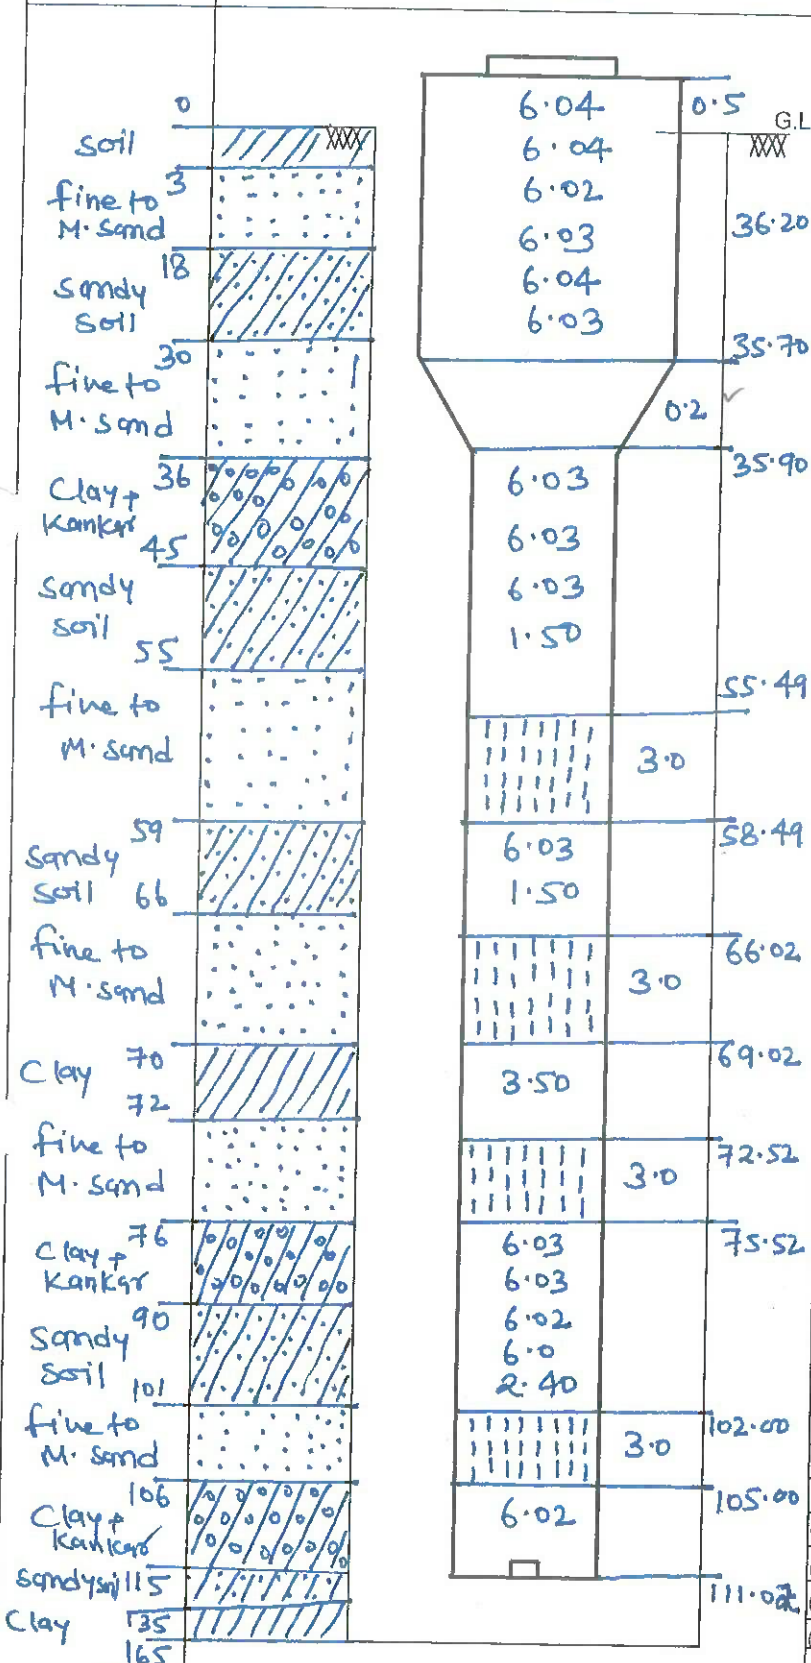 0
Soil
3
fine to
M. Sand
18
Sandy
Soil
30
fine to
M. Sand
36
Clay +
Kankar
45
Sandy
Soil
55
fine to
M. Sand
59
Sandy
Soil 66
fine to
M. Sand
Clay 70
72
fine to
M. Sand
76
Clay +
Kankar
90
Sandy
Soil
101
fine to
M. Sand
106
Clay +
Kankar
Sandy soil 115
Clay 135
165
6.04
6.04
6.02
6.03
6.04
6.03
6.03
6.03
6.03
1.50
6.03
1.50
3.50
6.03
6.03
6.02
6.0
2.40
6.02
0.5
0.2
3.0
3.0
3.0
3.0
G.L
36.20
35.70
35.90
55.49
58.49
66.02
69.02
72.52
75.52
102.00
105.00
111.02